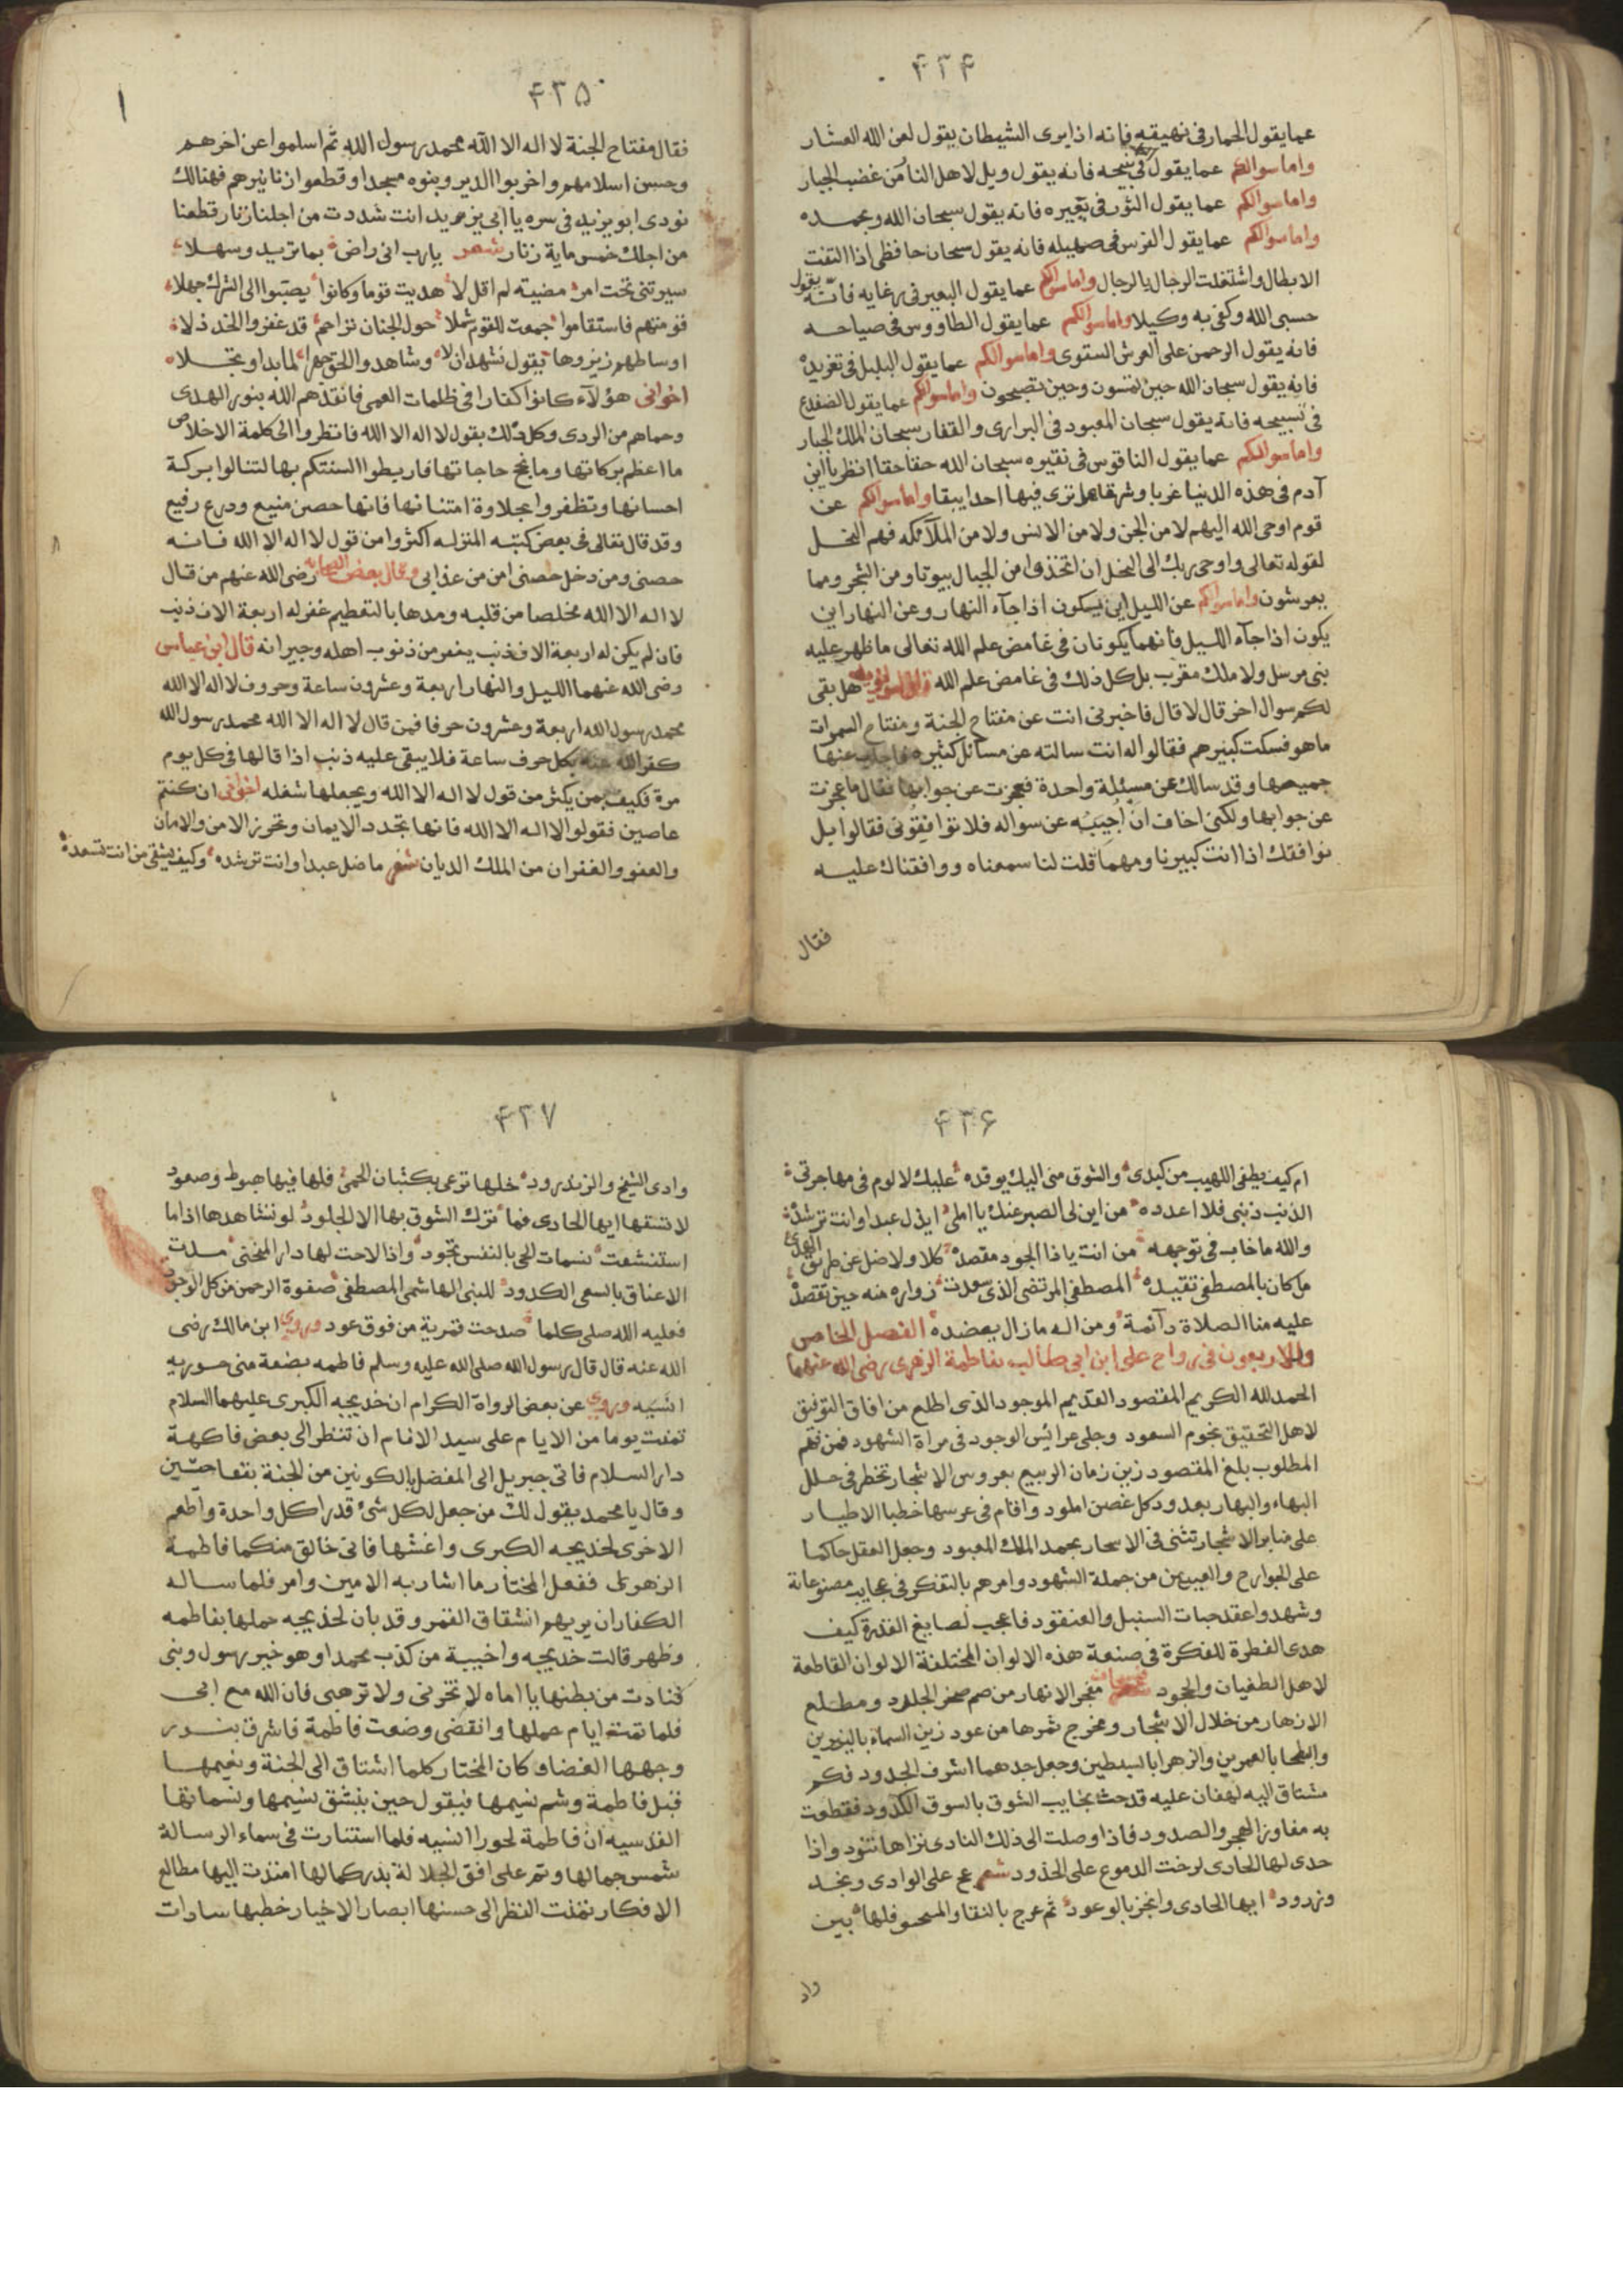 ٤٣٤
عما يقول الحمار فى نهيقه فانه اذا يرى الشيطان يقول لعن الله العشار
واما سوالكم عما يقول فى نبيحه فانه يقول ويل لاهل النا من غضب الجبار
واما سوالكم عما يقول الثور فى فانه يقول سبحان الله وبحمده
واما سوالكم عما يقول الفرس فى صهيله فانه يقول سبحان حافظى اذا التفت
الابطال واشتغلت الرجال بالرجال واما سوالكم عما يقول البعير فى رغايه فانه يقول
حسبى الله وكفى به وكيلا واما سوالكم عما يقول الطاووس فى صياحه
فانه يقول الرحمن على العرش استوى واما سوالكم عما يقول البلبل فى تغريده
فانه يقول سبحان الله حين تمسون وحين تصبحون واما سوالكم عما يقول الضفدع
فى تسبيحه فانه يقول سبحان المعبود فى البرارى والقفار سبحان الملك الجبار
واما سوالكم عما يقول الناقوس فى نقيره سبحان الله حقا حقا انظر يا ابن
آدم فى هذه الدنيا غربا وشرقا هل ترى فيها احدا يبقا واما سوالكم عن
قوم اوحى الله اليهم لا من الجن ولا من الانس ولا من الملآئكه فهم النحل
لقوله تعالى واوحى ربك الى النحل ان اتخذى من الجبال بيوتا ومن الشجر ومما
يعرشون واما سوالكم عن الليل اين يسكون اذا جآء النهار وعن النهار اين
يكون اذا جآء الليل فانهما يكونان فى غامض علم الله تعالى ما ظهر عليه
نبى مرسل ولا ملك مقرب بل كل ذلك فى غامض علم الله هل بقى
لكم سوال اخر قال لا قال فاخبرنى انت عن مفتاح الجنة ومفتاح السموات
ما هو فسكت كبيرهم فقالوا له انت سالته عن مسائل كثيره فاجاب عنها
جميعها وقد سالك عن مسئلة واحدة فعجزت عن جوابها فقال ما عجزت
عن جوابها ولكنى اخاف ان اجيبه عن سواله فلا توافقونى فقالوا بل
نوافقك اذا انت كبيرنا ومهما قلت لنا سمعناه ووافقناك عليه
فقال
٤٣٥
فقال مفتاح الجنة لا اله الا الله محمد رسول الله ثم اسلموا عن اخرهم
وحسن اسلامهم واخربوا الدير وبنوه مسجدا وقطعوا زنانيرهم فهنالك
نودى ابو يزيد فى سره يا ابى يزيد انت شددت من اجلنا زنار قطعنا
من اجلك خمس ماية زنار شعر يارب انى راض بما تريد وسهلا
سيرتنى تحت امر مضيته لم اقل لا هديت قوما وكانوا الى الشرك جهلا
قومتهم فاستقاموا جمعت للقوم شملا حول الجنان تراحم قد عفروا الخد ذلا
اوساطهم زنروها بقول نشهد ان لا وشاهدوا الحق جهرا لما بدا وتجلا
اخوانى هؤلآء كانوا كفارا فى ظلمات العمى فانقذهم الله بنور الهدى
وحماهم من الردى وكل ذلك بقول لا اله الا الله فانظروا الى كلمة الاخلاص
ما اعظم بركاتها وما انجح حاجاتها فاربطوا السنتكم بها لتنالوا بركة
احسانها وتظفروا بحلاوة امتنانها فانها حصن منيع ودرع رفيع
وقد قال تعالى فى بعض كتبه المنزله اكثروا من قول لا اله الا الله فانه
حصنى ومن دخل حصنى امن من عذابى وقال بعض الصحابة رضى الله عنهم من قال
لا اله الا الله مخلصا من قلبه ومدها بالتعظيم غفر له اربعة الاف ذنب
فان لم يكن له اربعة الاف ذنب يغفر من ذنوب اهله وجيرانه قال ابن عباس
رضى الله عنهما الليل والنهار اربعة وعشرون ساعة وحروف لا اله الا الله
محمد رسول الله اربعة وعشرون حرفا فمن قال لا اله الا الله محمد رسول الله
كفر الله عنه بكل حرف ساعة فلا يبقى عليه ذنب اذا قالها فى كل يوم
مرة فكيف بمن يكثر من قول لا اله الا الله ويجعلها شغله اخوانى ان كنتم
عاصين فقولوا لا اله الا الله فانها تجدد الايمان وتحرز الامن والامان
والعفو والغفران من الملك الديان شعر ما ضل عبدا وانت ترشده وكيف يشقى من انت تسعده
٤٣٦
ام كيف يطفى اللهيب من كبدى والشوق منى اليك يوقده عليك لا لوم فى مهاجرتى
الذنب ذنبى فلا اعدده من اين لى الصبر عنك يا املى ايذل عبدا وانت ترشده
والله ما خاب فى توجهه من انت ياذا الجود مقصده كلا ولا ضل عن طريق الهدى
ما كان بالمصطفى تقيده المصطفى المرتضى الذى سعدت زواره منه حين تقصده
عليه منا الصلاة دآئمة ومن اله ما زال يعضده الفصل الخامس
والاربعون فى زواج على ابن ابى طالب بفاطمة الزهرى رضى الله عنهما
الحمد لله الكريم المقصود القديم الموجود الذى اطلع من افاق التوفيق
لاهل التحقيق نجوم السعود وجلى عرائس الوجود فى مراة الشهود فمن فهم
المطلوب بلغ المقصود زين زمان الربيع بعروس الاشجار تخطر فى حلل
البهاء والبهار بعد ود كل غصن املود واقام فى عرسها خطبا الاطيار
على منابر الاشجار تثنى فى الاسحار بحمد الملك المعبود وجعل العقل حاكما
على الجوارح والعينين من جملة الشهود وامرهم بالتفكر فى عجايب مصنوعاته
وشهدوا عقد حبات السنبل والعنقود فاعجب لصايغ القدرة كيف
هدى الفطرة للفكرة فى صنعة هذه الالوان المختلفة الالوان القاطعة
لاهل الطغيان والجحود مفجر الانهار من صم صخر الجلمود ومطلع
الازهار من خلال الاشجار ومخرج ثمرها من عود زين السماء بالنيرين
والبطحا بالعمرين والزهرا بالسبطين وجعل جدهما اشرف الجدود فكم
مشتاق اليه لهفان عليه قد حث نجايب الشوق بالسوق الكدود فقطعت
به مفاوز الهجر والصدود فاذا وصلت الى ذلك النادى تراها تنود واذا
حدى لها الحادى ارخت الدموع على الخدود شعر عج على الوادى ونجد
وزرود ايها الحادى وانجز بالوعود ثم عرج بالنقا والمسحو فلها بين
واد
٤٣٧
وادى الشيخ والزندرود خلها ترعى بكثبان الحمى فلها فيها هبوط وصعود
لا تسقها ايها الحادى فما ترك الشوق بها الا الجلود لو تشاهدها اذا ما
استنشقت نسمات الحى بالنفس تجود واذا لاحت لها دار المنحنى مدت
الاعناق بالسعى الكدود للنبى الهاشمى المصطفى صفوة الرحمن من كل الوجود
فعليه الله صلى كلما صدحت قمرية من فوق عود وروى ابن مالك رضى
الله عنه قال قال رسول الله صلى الله عليه وسلم فاطمه بضعة منى حوريه
انسيه وروى عن بعض الرواة الكرام ان خديجه الكبرى عليهما السلام
تمنت يوما من الايام على سيد الانام ان تنظر الى بعض فاكهة
دار السلام فاتى جبريل الى المفضل بالكونين من الجنة بتفاحتين
وقال يا محمد يقول لك من جعل لكل شئ قدرا كل واحدة واطعم
الاخرى لخديجه الكبرى واغشها فانى خالق منكما فاطمة
الزهرى ففعل المختار ما اشار به الامين وامر فلما ساله
الكفار ان يريهم انشقاق القمر وقد بان لخديجه حملها بفاطمه
وظهر قالت خديجه واخيبة من كذب محمدا وهو خير رسول ونبى
فنادت من بطنها يا اماه لا تحزنى ولا ترهبى فان الله مع ابى
فلما تمت ايام حملها وانقضى وضعت فاطمة فاشرق بنور
وجهها الفضا وكان المختار كلما اشتاق الى الجنة ونعيمها
قبل فاطمة وشم نسيمها فيقول حين ينشق نسيمها ونسماتها
القدسيه ان فاطمة لحورا انسيه فلما استنارت فى سماء الرسالة
شمس جمالها وتم على افق الجلالة بدر كمالها امتدت اليها مطالع
الافكار نفذت النظر الى حسنها ابصار الاخيار خطبها سادات